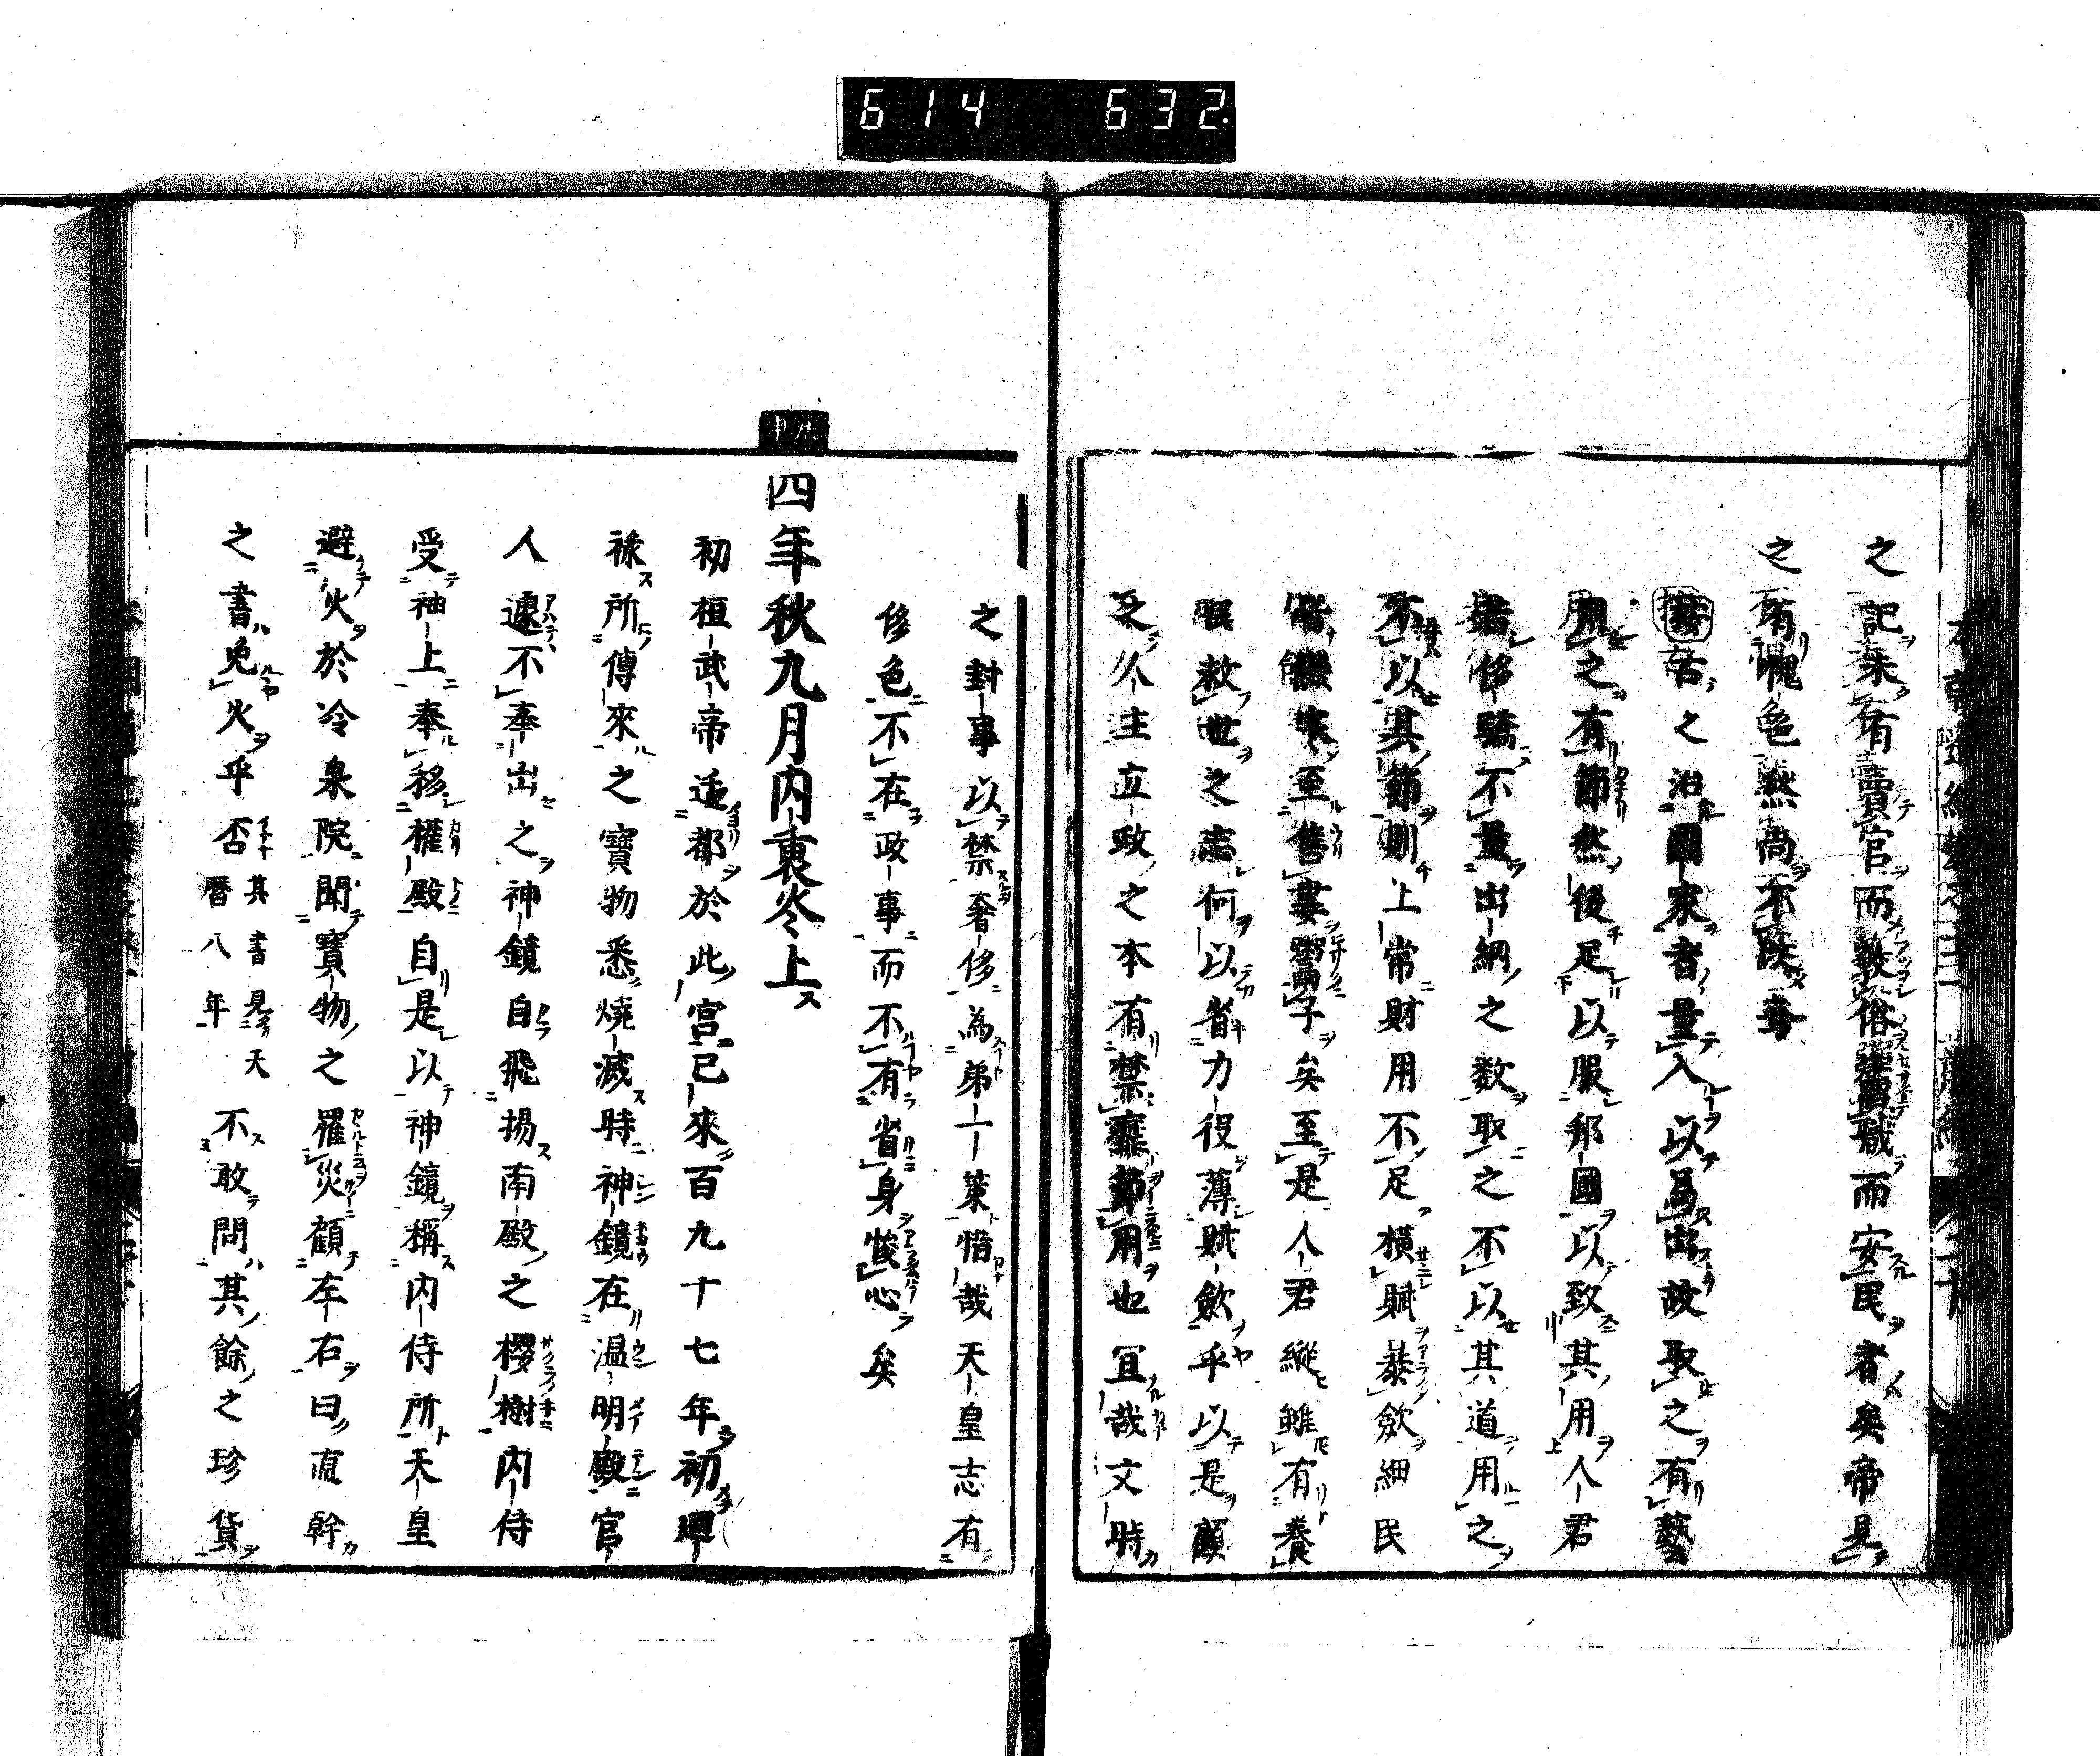 614 632
之記未有賣官而敦俗 職而安民者矣帝見
之有愧色然尚不 
 古之治國家者量入以爲出故取之有藝
用之有節然後足以服邦國以致其用人君
若侈驕不量出納之数取之不以其道用之
不以其節則上常財用不足横賦暴斂細民
 至售妻鬻子矣至是人君縱雖有養
民救世之志何以省力役薄賦斂乎以是顧
之久主立政之本有禁靡節用也宜哉文時
之封事以禁奢侈為弟一策惜哉天皇志有
侈色不在政事而不有省身悛心矣
四年秋九月内裏災上
初桓武帝遷都於此宮已來百九十七年初
 所傳來之寶物悉燒滅時神鏡在温明殿官
人遽不奉出之神鏡自飛揚南殿之櫻樹内侍
受袖上奉移權殿自是以神鏡稱内侍所天皇
避火於冷泉院聞寶物之罹災顧左右曰直幹
之書免火乎否其書見天暦八年不敢問其餘之珍貨